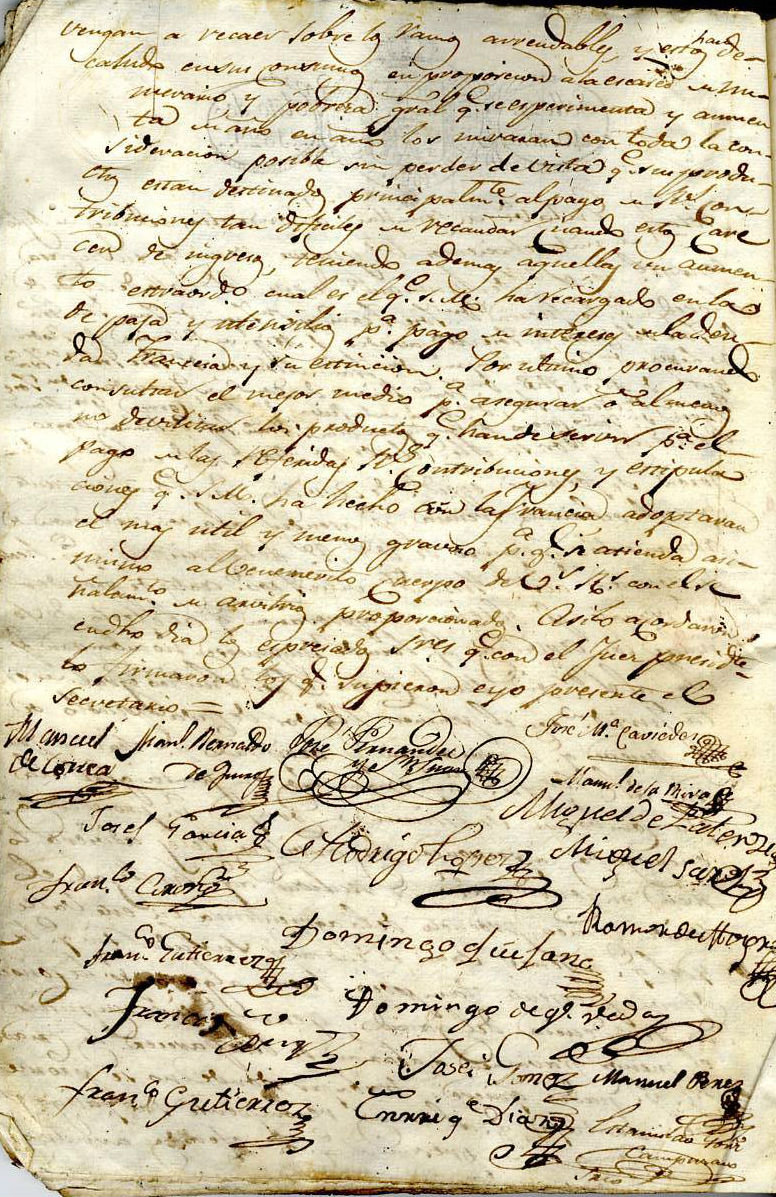 vengan a recaer sobre los ramos arrendables, y estos han de-
cahido en sus consumos en proporcion a la escasez de nu-
merario y pobreza gral q.e se esperimenta y aumen
ta de año en año los miraran con toda la con-
sideracion posible sin perder de vista q.e sus produ-
ctos estan destinados principalm.te al pago de R.s Con-
tribuciones tan dificiles de recaudar cuando estos care
cen de ingresos, teniendo ademas aquellas un aumen-
to estraord.o cual es el q.e S. M. ha recargado en la
de paja y utensilios p.a pago de intereses de la deu-
da Francesa y su estincion. Por ultimo procurando
consultar el mejor medio p.a asegurar o al menos
no devilitar los productos q.e han de servir p.a el
pago de las referidas R.s Contribuciones, y estipula
ciones q.e S. M. ha hecho con la Francia adoptaran
el mas util y menos gravoso p.a q.e se atienda asi-
mismo al Venemerito Cuerpo de V.s R.s con el se
ñalam.to de arvitrios proporcionados. Asi lo acordaron
en dho dia los espresados Sres q.e con el Juez presid.te
lo firmaron los q.e supieron e yo presente el
Secretario =
Manuel de Manl. Bernaldo
Jose Fernandez
José M.a Caviedes
Man.l de la Riva
Josef Garcia
Rodrigo Lopez
Miguel de
Miguel
Fran.co
Ramon de Hoyos
Fran.co Gutierrez
Domingo
Francisco
Domingo de
Jose Gomez
Manuel Perez
Fran.co Gutierrez
Enrriq.e Diaz
Campuzano
Srio